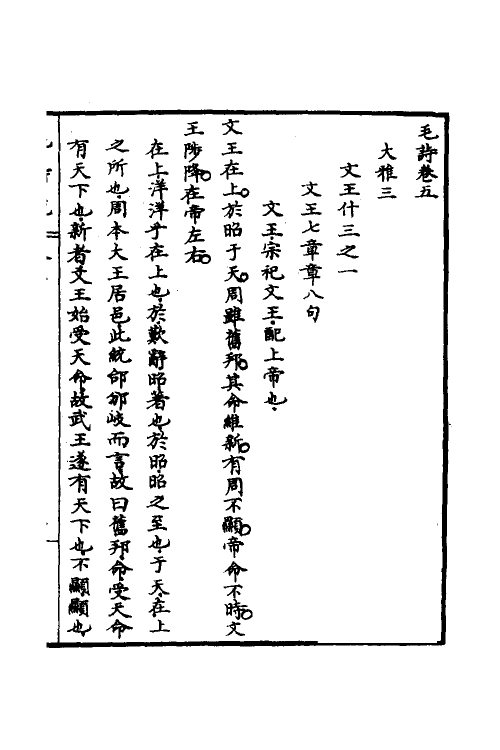 毛詩卷五
大雅三
文王什三之一
文王七章章八句
文王宗祀文王配上帝也
文王在上於昭于天周雖舊邦其命維新有周不顯帝命不時文
王陟降在帝左右
在上洋洋乎在上也於歎辭昭著也於昭昭之至也于天在上
之所也周本大王居邑此統邰邠岐而言故曰舊邦命受天命
有天下也新者文王始受天命故武王遂有天下也不顯顯也